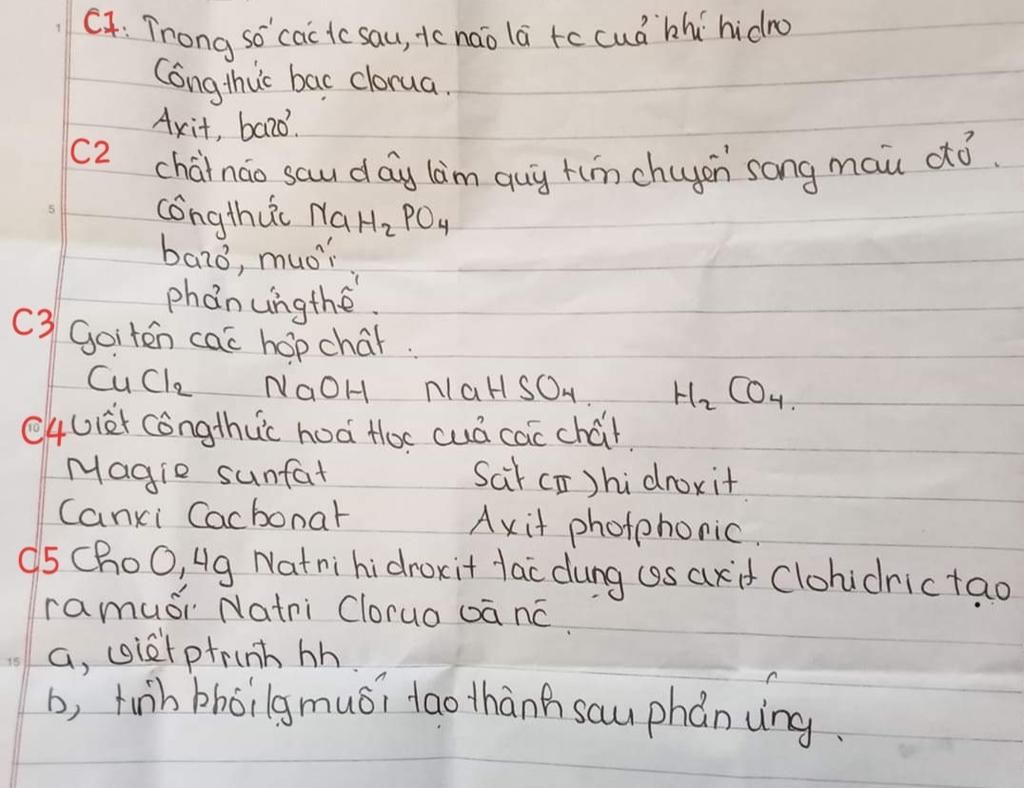 C1: Trong số các tc sau, tc nào là tc cuả khí hidro
Công thức bạc clorua.
Axit, bazơ.
C2 chất nào sau dây làm quỳ tím chuyển sang màu đỏ.
5
Công thức NaH₂PO₄
bazơ, muối
phản ứng thế.
C3 Gọi tên các hợp chất.
CuCl₂ NaOH NaHSO₄. H₂CO₄.
C4 Viết công thức hoá học cuả các chất.
10
Magie sunfat Sắt (II) hidroxit
Canxi Cacbonat Axit photphoric.
C5 Cho 0,4g Natri hidroxit tác dụng vs axit Clohidric tạo
ra muối Natri Clorua và nc.
15 a, viết ptrình hh.
b, tính khối lg muối tạo thành sau phản ứng.